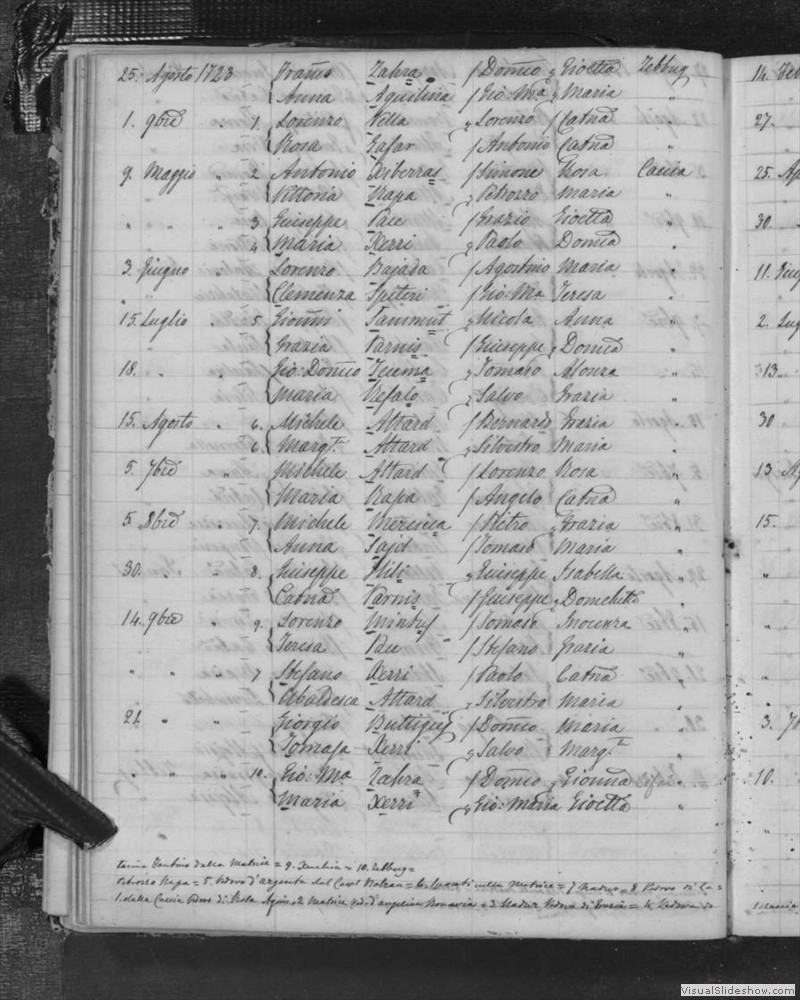 25. Agosto 1723 Franco Zahra / Domco Gioetta Zebbug
Anna Aquilina / Gio: Ma Maria "
1. 9bre " 1. Lorenzo Vella Lorenzo / Catna "
Rosa Gafar / Antonio Catna "
9. Maggio " 2 Antonio Xiberras / Simone Rosa Caccia
Vittoria Rapa Petrozzo Maria "
" " " 3 Giuseppe Pace / Grazio Gioetta "
4 Maria Xerri Paolo Domca "
3. Giugno " Lorenzo Bajada / Agostino Maria "
Clemenza Spiteri / Gio: Ma Teresa "
15. Luglio " 5 Gionni Tammut Nicola Anna "
Grazia Varnis / Giuseppe Domca "
18. " " Gio: Domco Teuma Tomaso Alonza "
Maria Refalo Salvo Grazia "
15. Agosto " 6. Michele Attard / Bernardo Grazia "
6. Margta Attard Silvestro Maria "
5. 7bre " Michele Attard / Lorenzo Rosa "
Maria Rapa / Angelo Catna "
5. 8bre " 7. Michele Mercieca / Pietro Grazia "
Anna Sajd / Tomaso Maria "
30. " " 8. Giuseppe Hili Giuseppe Isabella "
Catna Varnis / Giuseppe "
14. 9bre " 9. Lorenzo Mintuf / Tomaso Inocenza "
Teresa Pace / Stefano Grazia "
" " " 7 Stefano Xerri / Paolo Catna "
Ubaldesca Attard Silvestro Maria "
21. " " Giorgio Buttigieg / Domco Maria "
Tomasa Xerri Salvo Margta "
" " " 10. Gio: Ma Zahra / Domco Gionna "
Maria Xerri Gio: Maria Gioetta "
dalla Matrice = 9. Xeuchia = 10. Zebbug =
Rapa = 5. Vedovo d'argenta del Casal = 6. nella Matrice = 7 Nadur = 8 Vedovo di
1. della Caccia Vedovo di Rosa = 2 Matrice d'angelica Bonavia = 3 Nadur Vedovo di Grazia = 4 Vedova di
14. Feb
27.
25. Ap
30.
11. Giug
2. Lug
13.
30
13 Ag
15.
"
"
"
3. 7b
10.
"
VisualSlideshow.com